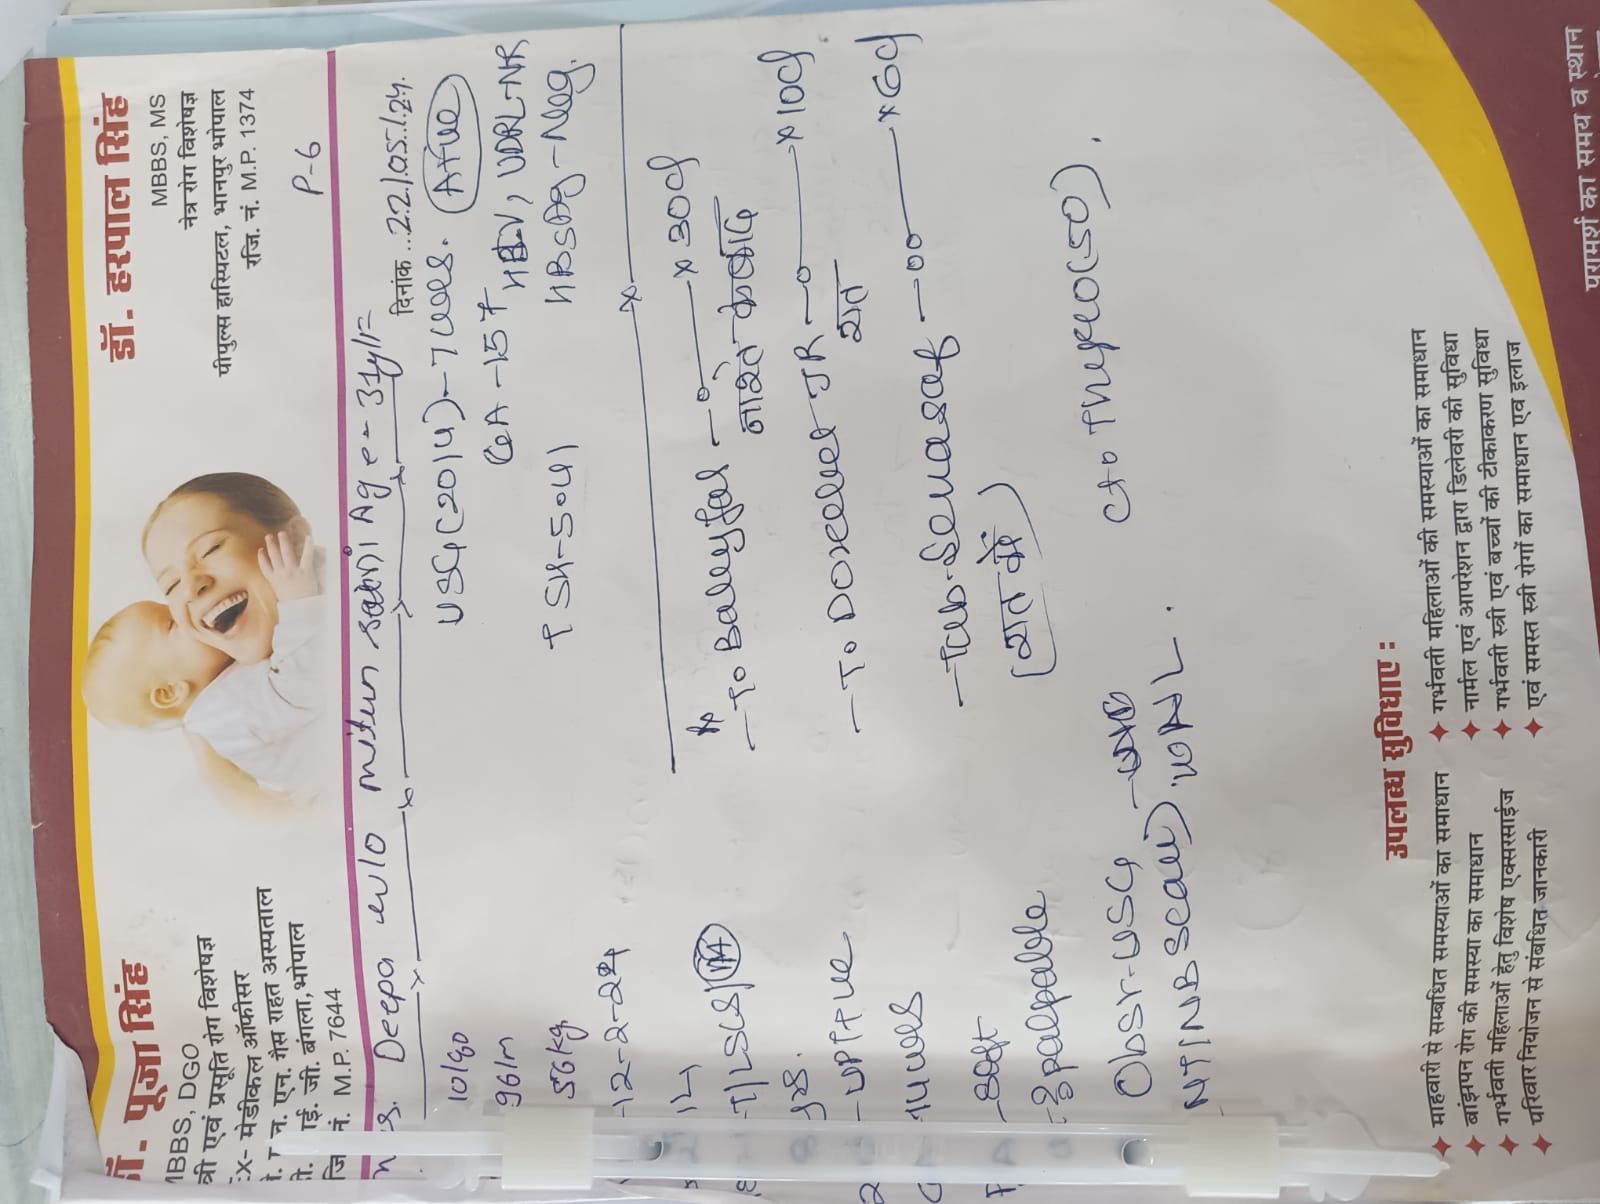 डॉ. पूजा सिंह
MBBS, DGO
स्त्री एवं प्रसूति रोग विशेषज्ञ
EX- मेडीकल ऑफीसर
एन. गैस राहत अस्पताल
आई. जी. बंगला, भोपाल
नं. M.P. 7644
डॉ. हरपाल सिंह
MBBS, MS
नेत्र रोग विशेषज्ञ
पीपुल्स हास्पिटल, भानपुर भोपाल
रजि. नं. M.P. 1374
P-6
Deepa w/o mitun Age - 31y/F
दिनांक ..22/05/24.
USG(2014)-7wks. A+ve
GA -157 HIV, VDRL-NR
TSH-5.041 HBSAg-Neg.
To Ballyfol x 30d
नाश्ते के बाद
To Doxcelvet JR x 10d
रात
Tab. Senasaf x 6d
(रात में)
Ct o Thyro(50).
/80
96/m
56kg
-12-2-24
14
-UPT+ve
14wks
-Soft
palpable
Obst-USG
NT/NB Scan) WNL.
उपलब्ध सुविधाए :
माहवारी से सम्बधित समस्याओं का समाधान
बांझपन रोग की समस्या का समाधान
गर्भवती महिलाओं हेतु विशेष एक्सरसाईज
परिवार नियोजन से संबधित जानकारी
गर्भवती महिलाओं की समस्याओं का समाधान
नार्मल एवं आपरेशन द्वारा डिलेवरी की सुविधा
गर्भवती स्त्री एवं बच्चों की टीकाकरण सुविधा
एवं समस्त स्त्री रोगों का समाधान एवं इलाज
परामर्श का समय व स्थान